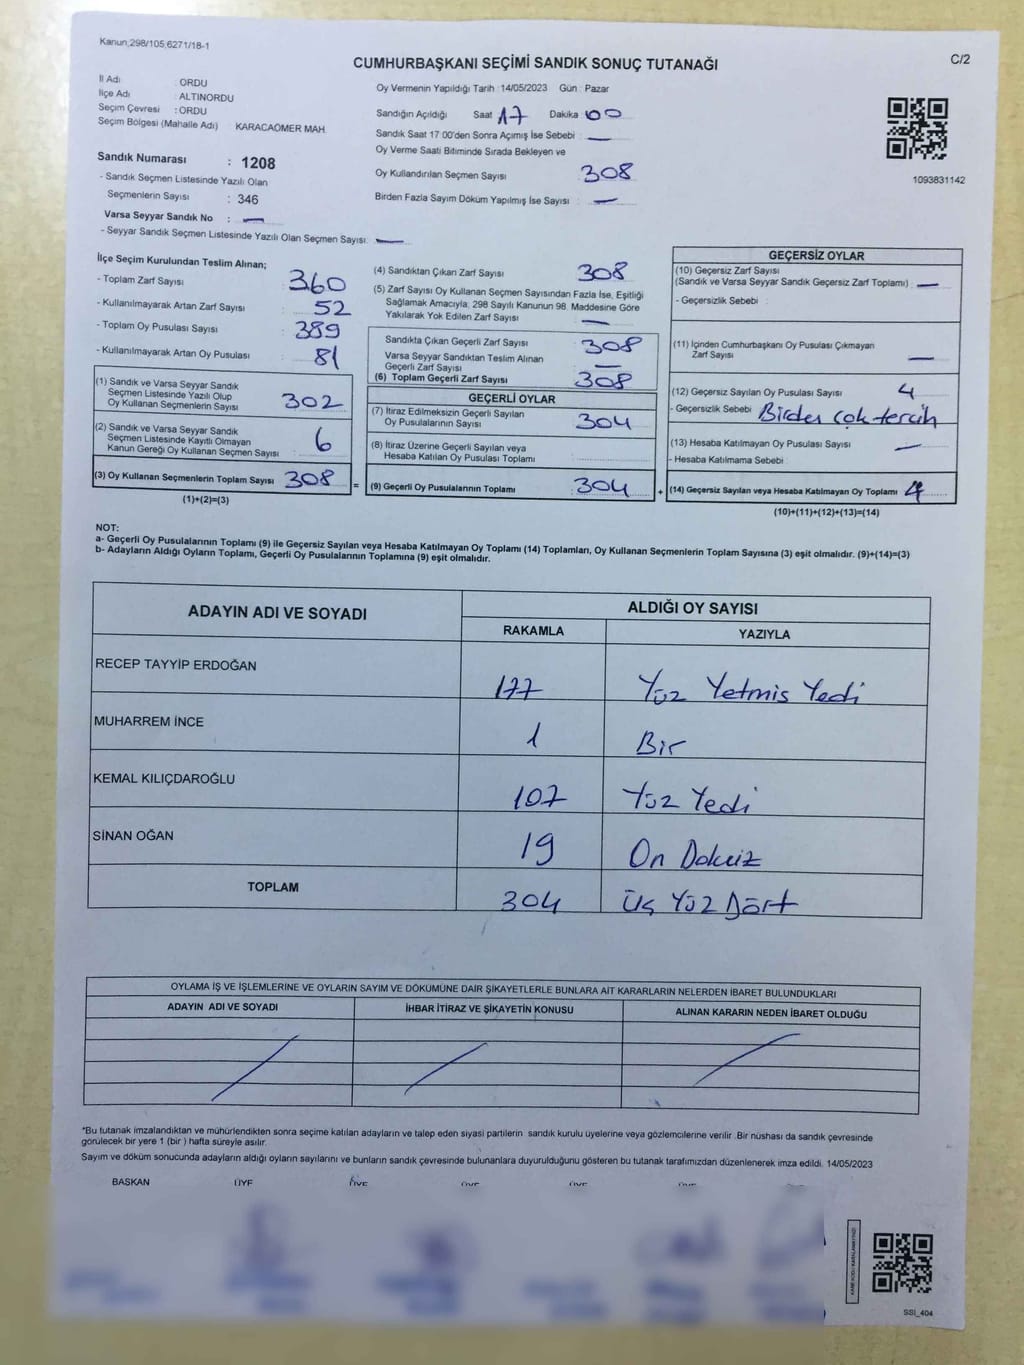 Kanun,298/105,6271/18-1
C/2
CUMHURBAŞKANI SEÇİMİ SANDIK SONUÇ TUTANAĞI
İl Adı : ORDU
İlçe Adı : ALTINORDU
Seçim Çevresi : ORDU
Seçim Bölgesi (Mahalle Adı) KARACAÖMER MAH.
Sandık Numarası : 1208
- Sandık Seçmen Listesinde Yazılı Olan
Seçmenlerin Sayısı : 346
Varsa Seyyar Sandık No : —
- Seyyar Sandık Seçmen Listesinde Yazılı Olan Seçmen Sayısı: —
Oy Vermenin Yapıldığı Tarih : 14/05/2023 Gün : Pazar
Sandığın Açıldığı Saat 17 Dakika 00
Sandık Saat 17:00'den Sonra Açımış İse Sebebi : —
Oy Verme Saati Bitiminde Sırada Bekleyen ve
Oy Kullandırılan Seçmen Sayısı : 308
Birden Fazla Sayım Döküm Yapılmış İse Sayısı : —
1093831142
İlçe Seçim Kurulundan Teslim Alınan;
- Toplam Zarf Sayısı : 360
- Kullanılmayarak Artan Zarf Sayısı : 52
- Toplam Oy Pusulası Sayısı : 389
- Kullanılmayarak Artan Oy Pusulası : 81
(1) Sandık ve Varsa Seyyar Sandık
Seçmen Listesinde Yazılı Olup
Oy Kullanan Seçmenlerin Sayısı : 302
(2) Sandık ve Varsa Seyyar Sandık
Seçmen Listesinde Kayıtlı Olmayan
Kanun Gereği Oy Kullanan Seçmen Sayısı : 6
(3) Oy Kullanan Seçmenlerin Toplam Sayısı : 308
(1)+(2)=(3)
(4) Sandıktan Çıkan Zarf Sayısı : 308
(5) Zarf Sayısı Oy Kullanan Seçmen Sayısından Fazla İse, Eşitliği
Sağlamak Amacıyla; 298 Sayılı Kanunun 98. Maddesine Göre
Yakılarak Yok Edilen Zarf Sayısı : —
Sandıkta Çıkan Geçerli Zarf Sayısı : 308
Varsa Seyyar Sandıktan Teslim Alınan
Geçerli Zarf Sayısı : —
(6) Toplam Geçerli Zarf Sayısı : 308
GEÇERLİ OYLAR
(7) İtiraz Edilmeksizin Geçerli Sayılan
Oy Pusulalarının Sayısı : 304
(8) İtiraz Üzerine Geçerli Sayılan veya
Hesaba Katılan Oy Pusulası Toplamı :
= (9) Geçerli Oy Pusulalarının Toplamı : 304
GEÇERSİZ OYLAR
(10) Geçersiz Zarf Sayısı
(Sandık ve Varsa Seyyar Sandık Geçersiz Zarf Toplamı) : —
- Geçersizlik Sebebi :
(11) İçinden Cumhurbaşkanı Oy Pusulası Çıkmayan
Zarf Sayısı : —
(12) Geçersiz Sayılan Oy Pusulası Sayısı : 4
- Geçersizlik Sebebi : Birden çok tercih
(13) Hesaba Katılmayan Oy Pusulası Sayısı : —
- Hesaba Katılmama Sebebi :
+ (14) Geçersiz Sayılan veya Hesaba Katılmayan Oy Toplamı : 4
(10)+(11)+(12)+(13)=(14)
NOT:
a- Geçerli Oy Pusulalarının Toplamı (9) ile Geçersiz Sayılan veya Hesaba Katılmayan Oy Toplamı (14) Toplamları, Oy Kullanan Seçmenlerin Toplam Sayısına (3) eşit olmalıdır. (9)+(14)=(3)
b- Adayların Aldığı Oyların Toplamı, Geçerli Oy Pusulalarının Toplamına (9) eşit olmalıdır.
ADAYIN ADI VE SOYADI ALDIĞI OY SAYISI
RAKAMLA YAZIYLA
RECEP TAYYİP ERDOĞAN 177 Yüz Yetmis Yedi
MUHARREM İNCE 1 Bir
KEMAL KILIÇDAROĞLU 107 Yüz Yedi
SİNAN OĞAN 19 On Dokuz
TOPLAM 304 Üç Yüz Dört
OYLAMA İŞ VE İŞLEMLERİNE VE OYLARIN SAYIM VE DÖKÜMÜNE DAİR ŞİKAYETLERLE BUNLARA AİT KARARLARIN NELERDEN İBARET BULUNDUKLARI
ADAYIN ADI VE SOYADI İHBAR İTİRAZ VE ŞİKAYETİN KONUSU ALINAN KARARIN NEDEN İBARET OLDUĞU
*Bu tutanak imzalandıktan ve mühürlendikten sonra seçime katılan adayların ve talep eden siyasi partilerin sandık kurulu üyelerine veya gözlemcilerine verilir .Bir nüshası da sandık çevresinde
görülecek bir yere 1 (bir ) hafta süreyle asılır.
Sayım ve döküm sonucunda adayların aldığı oyların sayılarını ve bunların sandık çevresinde bulunanlara duyurulduğunu gösteren bu tutanak tarafımızdan düzenlenerek imza edildi. 14/05/2023
BAŞKAN ÜYE ÜYE ÜYE ÜYE ÜYE
SSI_404